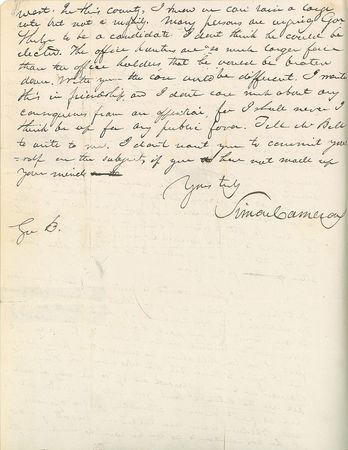 West. In this county, I know we can raise a large
vote but not a majority. Many persons are urging Gov
to be a candidate. I dont think he could be
elected. The office hunters are so much larger force
than the office holders, that he would be beaten
down. With you the case would be different. I write
this in friendship, and I dont care much about any
consequences from an official, for I shall never I
think be up for any public favor. Tell Mr Bell
to write to me. I don't want you to commit your
=self on the subject, if you have not made up
your mind
Yours truly
Simon Cameron
Gov B.